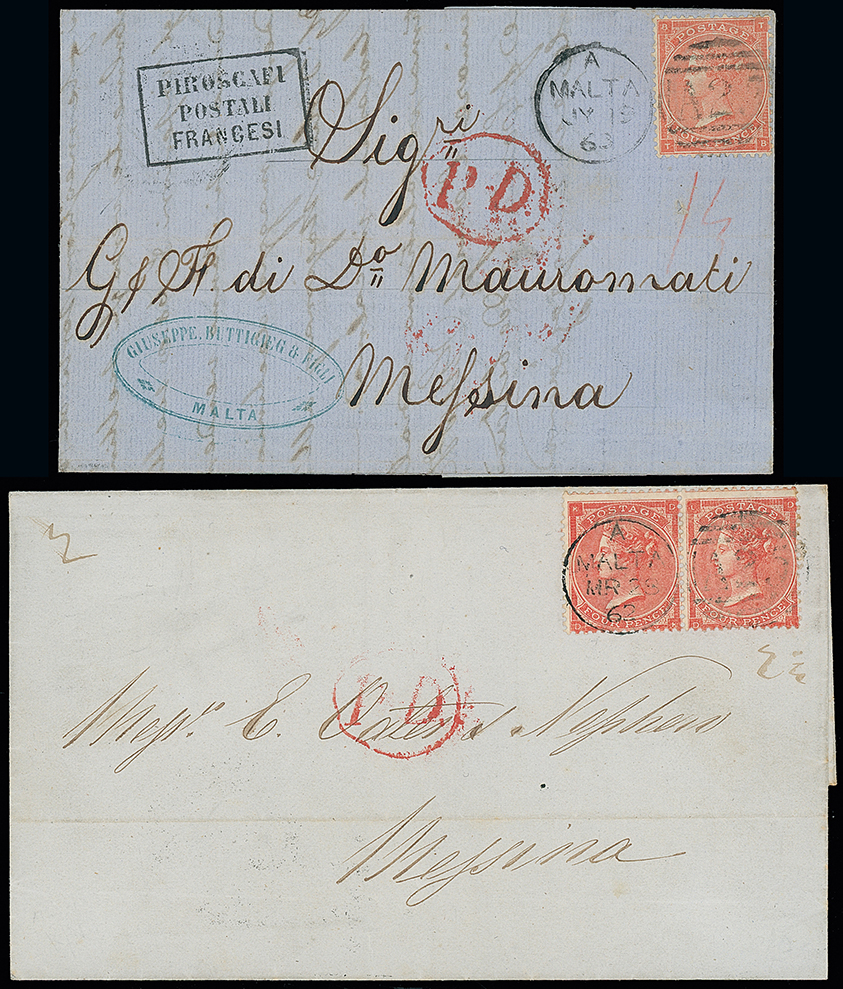 PIROSCAFI
POSTALI
FRANCESI
A
MALTA
JY 15
63
POSTAGE
FOUR PENCE
T B
Sigri
P.D.
G & F. di Do Mauromati
GIUSEPPE. BUTTIGIEG & FIGLI
MALTA
Messina
POSTAGE
FOUR PENCE
POSTAGE
FOUR PENCE
A
MALTA
MR 28
63
P.D.
Messrs E. Oates & Nephew
Messina